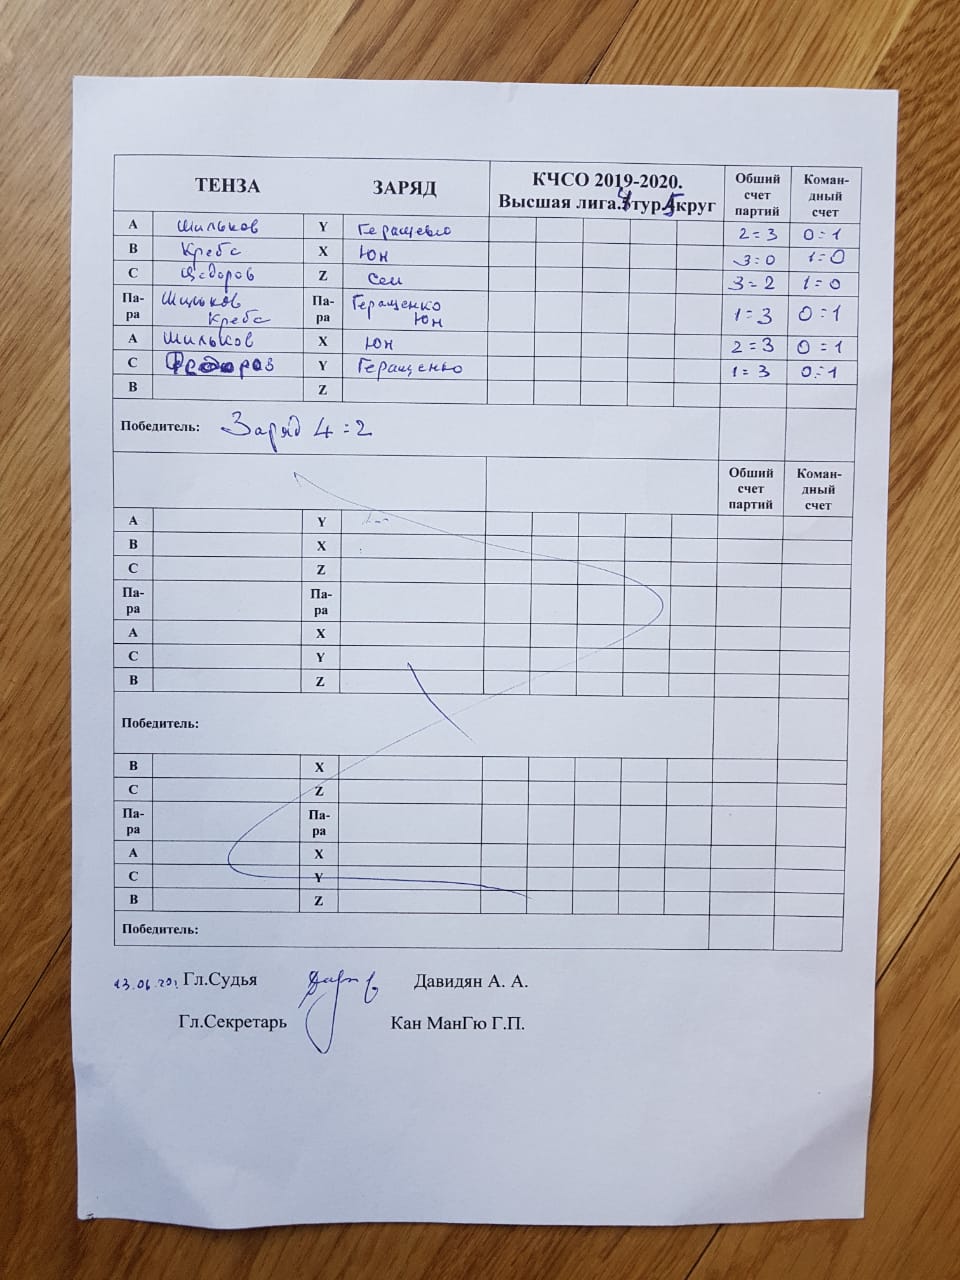 ТЕНЗА ЗАРЯД КЧСО 2019-2020. Высшая лига.4тур.5круг Общий счет партий Коман-дный счет
A Шильков Y Геращенко 2=3 0=1
B Кребс X Юн 3=0 1=0
C Федоров Z Сен 3=2 1=0
Па-ра Шильков Кребс Па-ра Геращенко Юн 1=3 0=1
A Шильков X Юн 2=3 0=1
C Федоров Y Геращенко 1=3 0=1
B Z
Победитель: Заряд 4=2
Общий счет партий Коман-дный счет
A Y
B X
C Z
Па-ра Па-ра
A X
C Y
B Z
Победитель:
B X
C Z
Па-ра Па-ра
A X
C Y
B Z
Победитель:
13.06.20г Гл.Судья Давидян А. А.
Гл.Секретарь Кан МанГю Г.П.